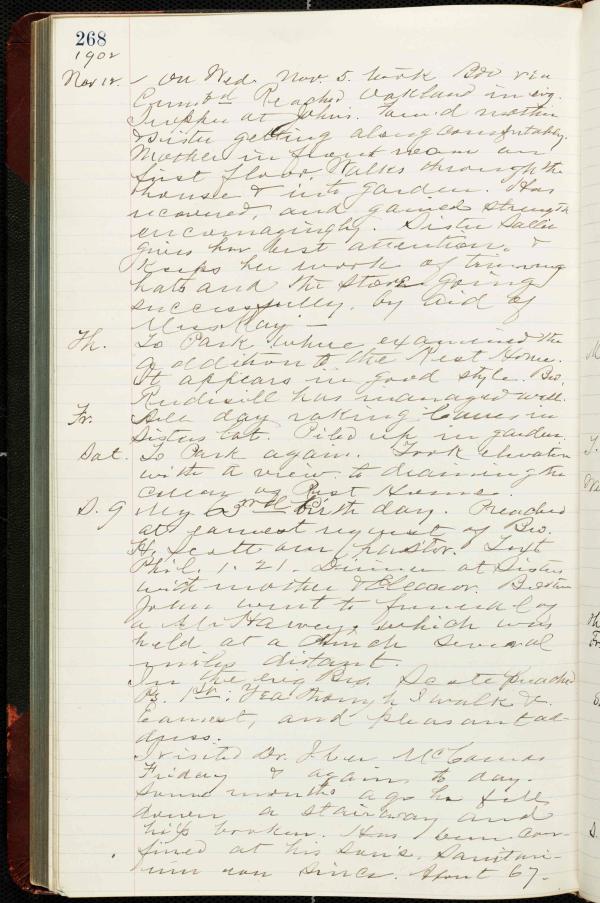 268
1902
Nov 12. On Wed. Nov. 5. took B&O via
Cumbd Reached Oakland in evg.
Supper at John's. Found mother
& Sister getting along comfortably.
Mother in front room on
first floor. Walks through the
house & into garden. Has
recovered, and gained strength
encouragingly. Sister Sallie
gives her best attention, &
keeps her work of trimming
hats and the store going
successfully, by aid of
Miss Kay. —
Th. To Park where examined the
addition to the Rest Home.
It appears in good style. Bro.
Rudisill has managed well.
Fr. All day raking leaves in
Sisters lot. Piled up in garden.
Sat. To Park again. Took elevation
with a view to draining the
of Rest Home.
S. 9 My 63rd birth day. Preached
at earnest request of Bro.
H. Scott our pastor. Text
Phil. 1. 21. Dinner at Sisters
with mother & Eleanor. Brother
John went to funeral of
a Mr Harvey, which was
held at a church several
miles distant.
In the evg Bro. Scott preached
Ps. Yea though I walk &.
Earnest, and pleasant ad-
dress.
I visited Dr. J Lee McComas
Friday & again to day.
Some months ago he fell
down a stairway and
hip broken. Has been con-
fined at his son's Sanitari-
um ever since. About 67.